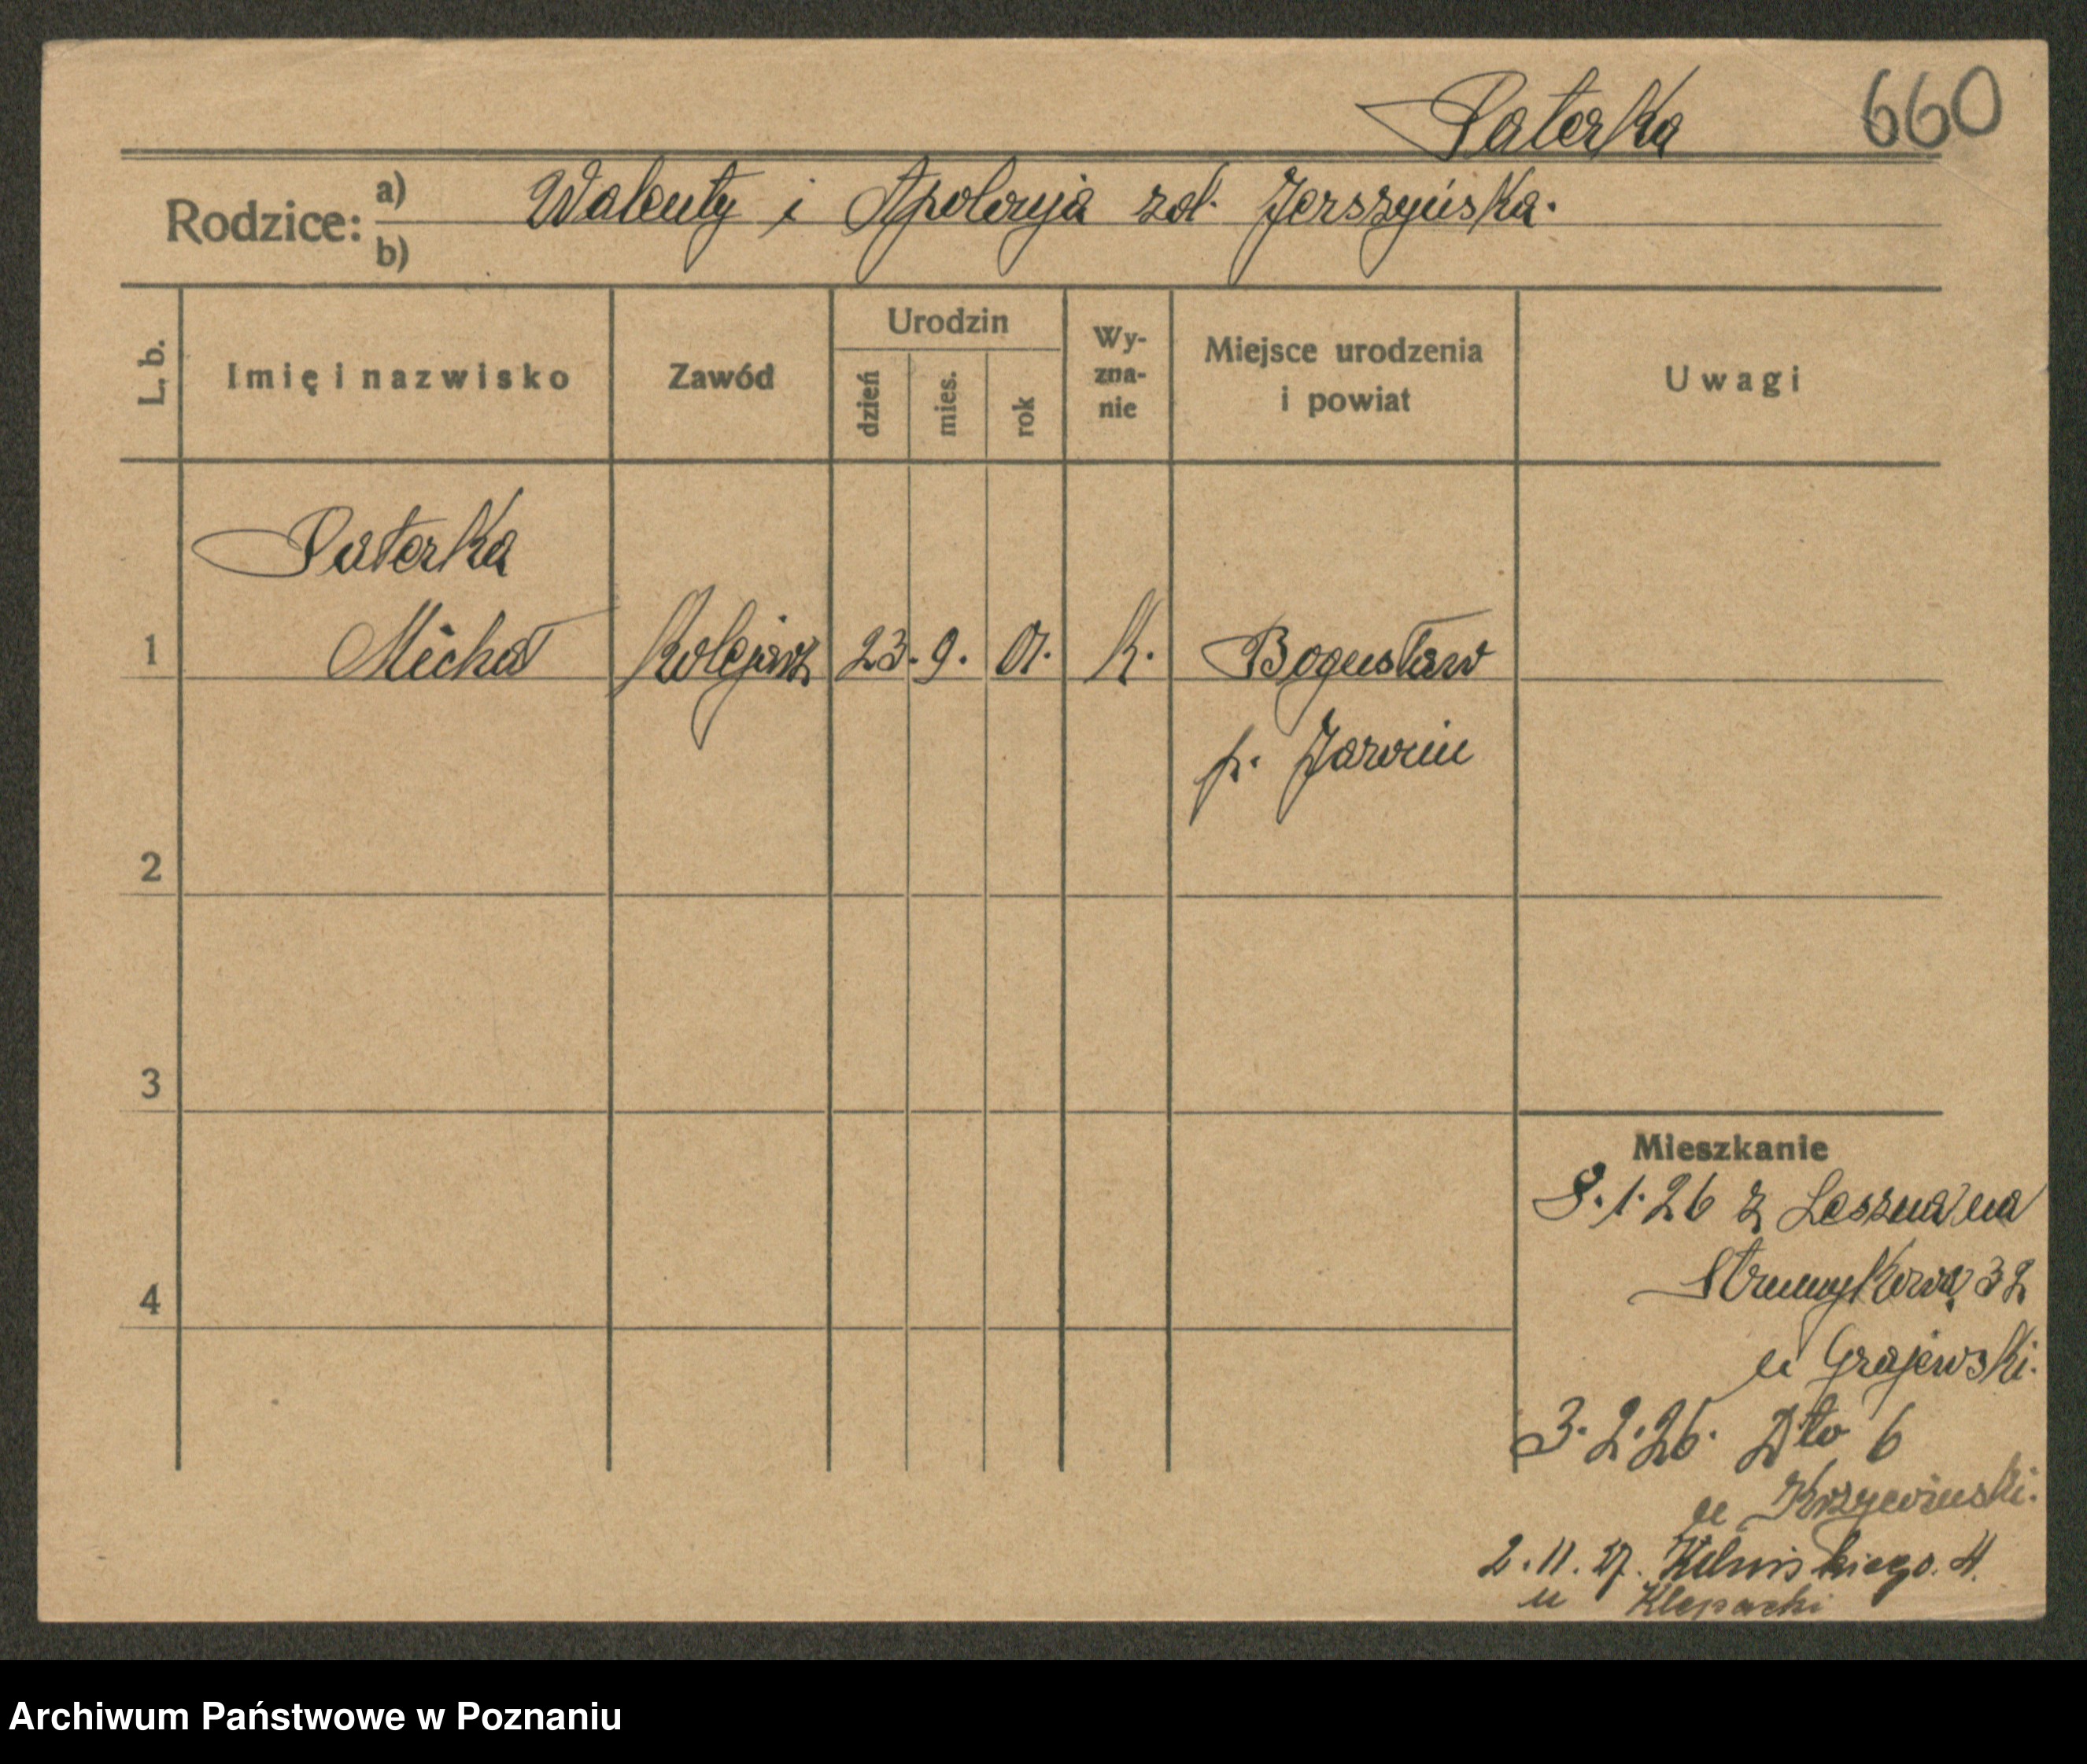 Paterka 660
Rodzice: a) Walenty i Apolonja zd. Jerszyńska.
b)
L. b. Imię i nazwisko Zawód Urodzin dzień mies. rok Wy-zna-nie Miejsce urodzenia i powiat Uwagi
Paterka
1 Michał Kolejarz 23. 9. 01. K. Bogusław
p. Jarocin
2
3
Mieszkanie
9.1.26 z Leszna na
4 Strumykowa 32
u Grajewski.
3.2.26. Dto 6
u Krzywinski.
2.11.27. Kilińskiego. 4.
u Klepacki
Archiwum Państwowe w Poznaniu